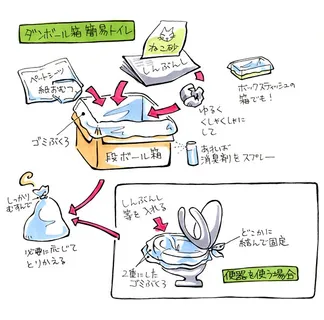 ダンボール箱 簡易トイレ
ねこ砂
ペットシーツ
紙おむつ
しんぶんし
ボックスティッシュの
箱でも!
ゆるく
くしゃくしゃに
して
ゴミぶくろ
段ボール箱
あれば
消臭剤をスプレー
しっかり
むすんで
しんぶんし
等を入れる
どこかに
結んで固定
必要に応じて
とりかえる
2重にした
ゴミぶくろ
便器を使う場合